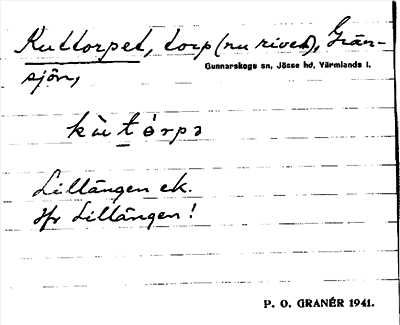 Kuttorpet, torp (nu rivet), Grän-
Gunnarskogs sn, Jösse hd, Värmlands l.
sjön,
kùtórpə
Lillängen ek.
Jfr Lillängen!
P. O. GRANÉR 1941.